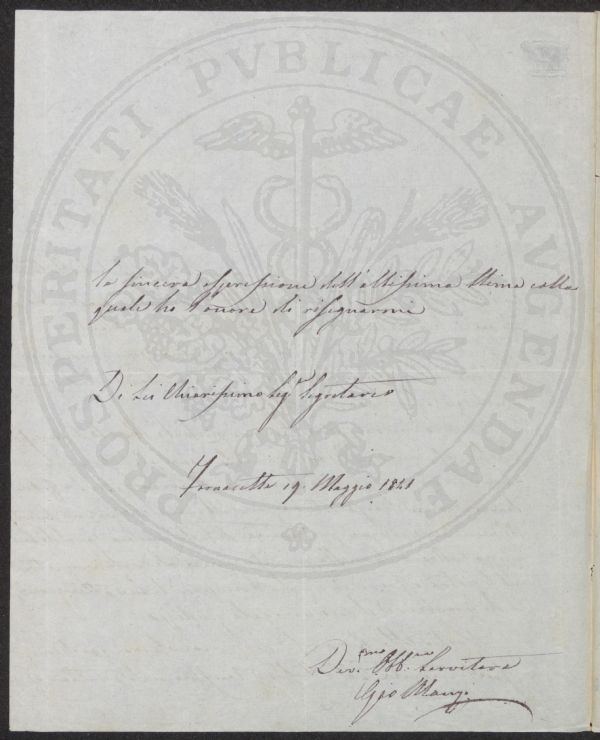 PROSPERITATI PVBLICAE AVGENDAE
la sincera espressione dell'altissima stima colla
quale ho l'onore di rassegnarmi
Di Lei Chiarissimo Sigr Segretario
19. Maggio 1841
Div.mo Obb.mo Servitore
Gio